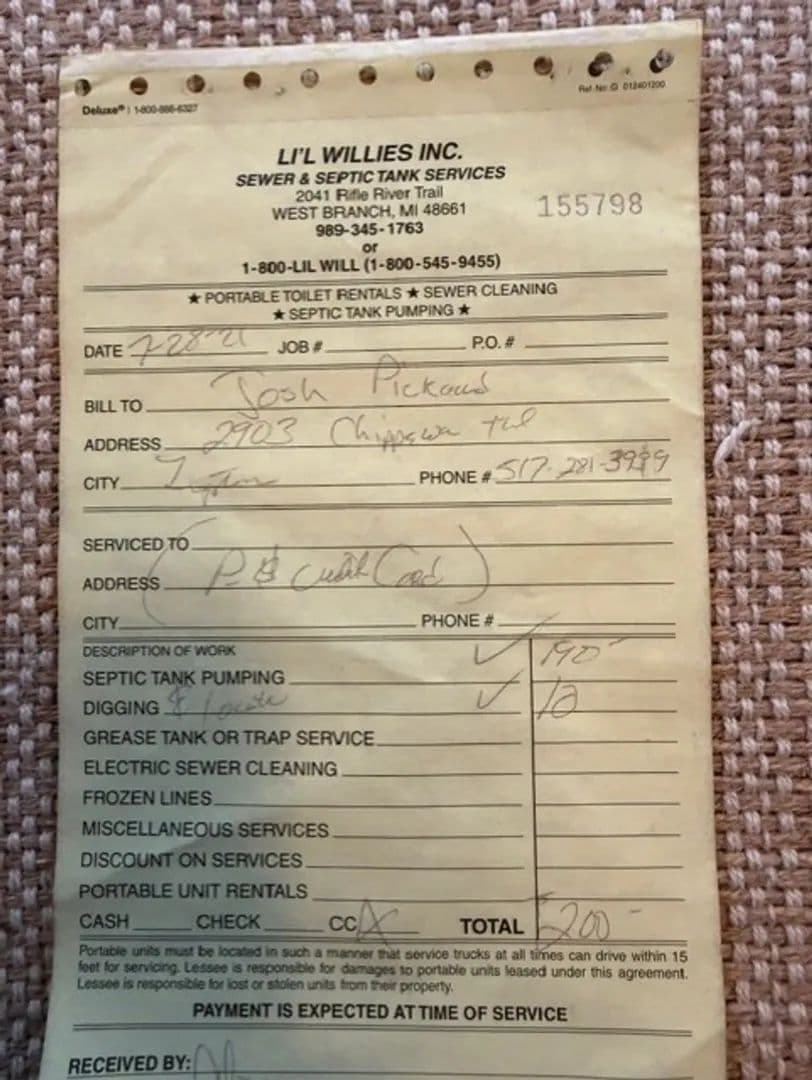 Deluxe® | 1-800-888-6327
Ref No G 012401200
LI'L WILLIES INC.
SEWER & SEPTIC TANK SERVICES
2041 Rifle River Trail
WEST BRANCH, MI 48661
155798
989-345-1763
or
1-800-LIL WILL (1-800-545-9455)
★ PORTABLE TOILET RENTALS ★ SEWER CLEANING
★ SEPTIC TANK PUMPING ★
DATE 7-28-21 JOB # P.O. #
BILL TO Josh
ADDRESS 2903 Chippewa
CITY PHONE # 517-281-
SERVICED TO
ADDRESS Credit Card
CITY PHONE #
DESCRIPTION OF WORK
SEPTIC TANK PUMPING ✓ 190-
DIGGING & locate ✓
GREASE TANK OR TRAP SERVICE
ELECTRIC SEWER CLEANING
FROZEN LINES
MISCELLANEOUS SERVICES
DISCOUNT ON SERVICES
PORTABLE UNIT RENTALS
CASH CHECK CC X TOTAL $200-
Portable units must be located in such a manner that service trucks at all times can drive within 15
feet for servicing. Lessee is responsible for damages to portable units leased under this agreement.
Lessee is responsible for lost or stolen units from their property.
PAYMENT IS EXPECTED AT TIME OF SERVICE
RECEIVED BY: